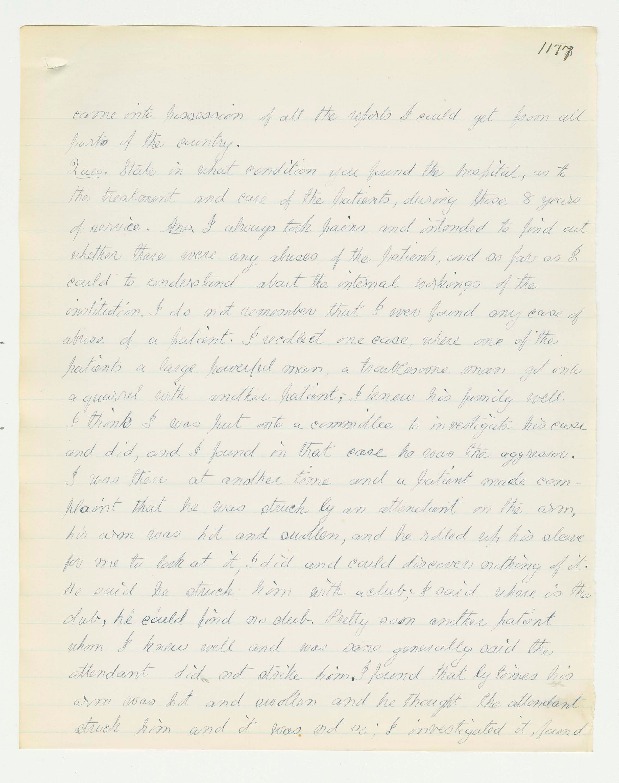 1177
came into possession of all the reports I could get from all
parts of the country.
Ques. State in what condition you found the hospital, as to
the treatment and care of the patients, during those 8 years
of service. Ans. I always took pains and intended to find out
whether there were any abuses of the patients, and so far as I
could to understand about the internal workings of the
institution. I do not remember that I ever found any case of
abuse of a patient. I recollect one case where one of the
patients a large powerful man, a troublesome man got into
a quarrel with another patient; I knew his family well.
I think I was put onto a committee to investigate his case
and did, and I found in that case he was the aggressor.
I was there at another time and a patient made com-
plaint that he was struck by an attendant on the arm,
his arm was hot and swollen, and he rolled up his sleeve
for me to look at it, I did and could discover nothing of it.
He said he struck him with a club; I said where is the
club, he could find no club. Pretty soon another patient
whom I knew well and was sane generally said the
attendant did not strike him. I found that by times his
arm was hot and swollen and he thought the attendant
struck him and it was not so: I investigated it, found